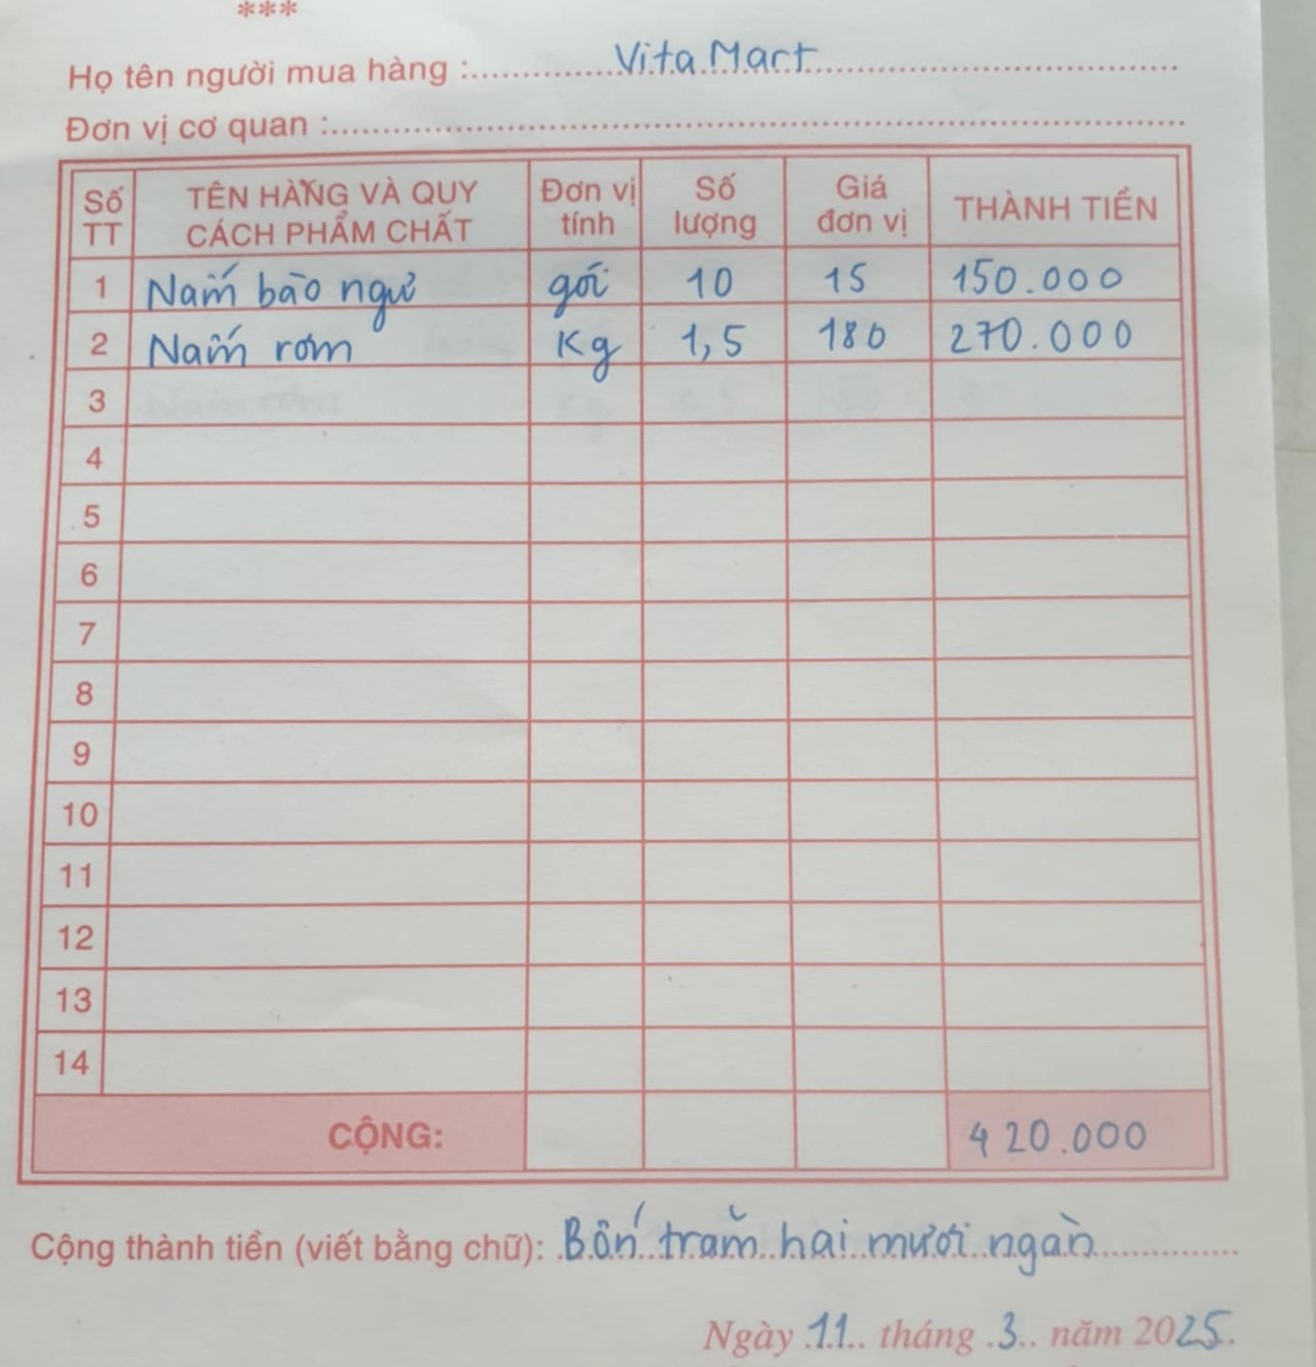 ***
Họ tên người mua hàng : Vita Mart
Đơn vị cơ quan :
Số TT TÊN HÀNG VÀ QUY CÁCH PHẨM CHẤT Đơn vị tính Số lượng Giá đơn vị THÀNH TIỀN
1 Nấm bào ngư gói 10 15 150.000
2 Nấm rơm Kg 1,5 180 270.000
3
4
5
6
7
8
9
10
11
12
13
14
CỘNG: 420.000
Cộng thành tiền (viết bằng chữ): Bốn trăm hai mươi ngàn
Ngày 11 tháng 3 năm 2025